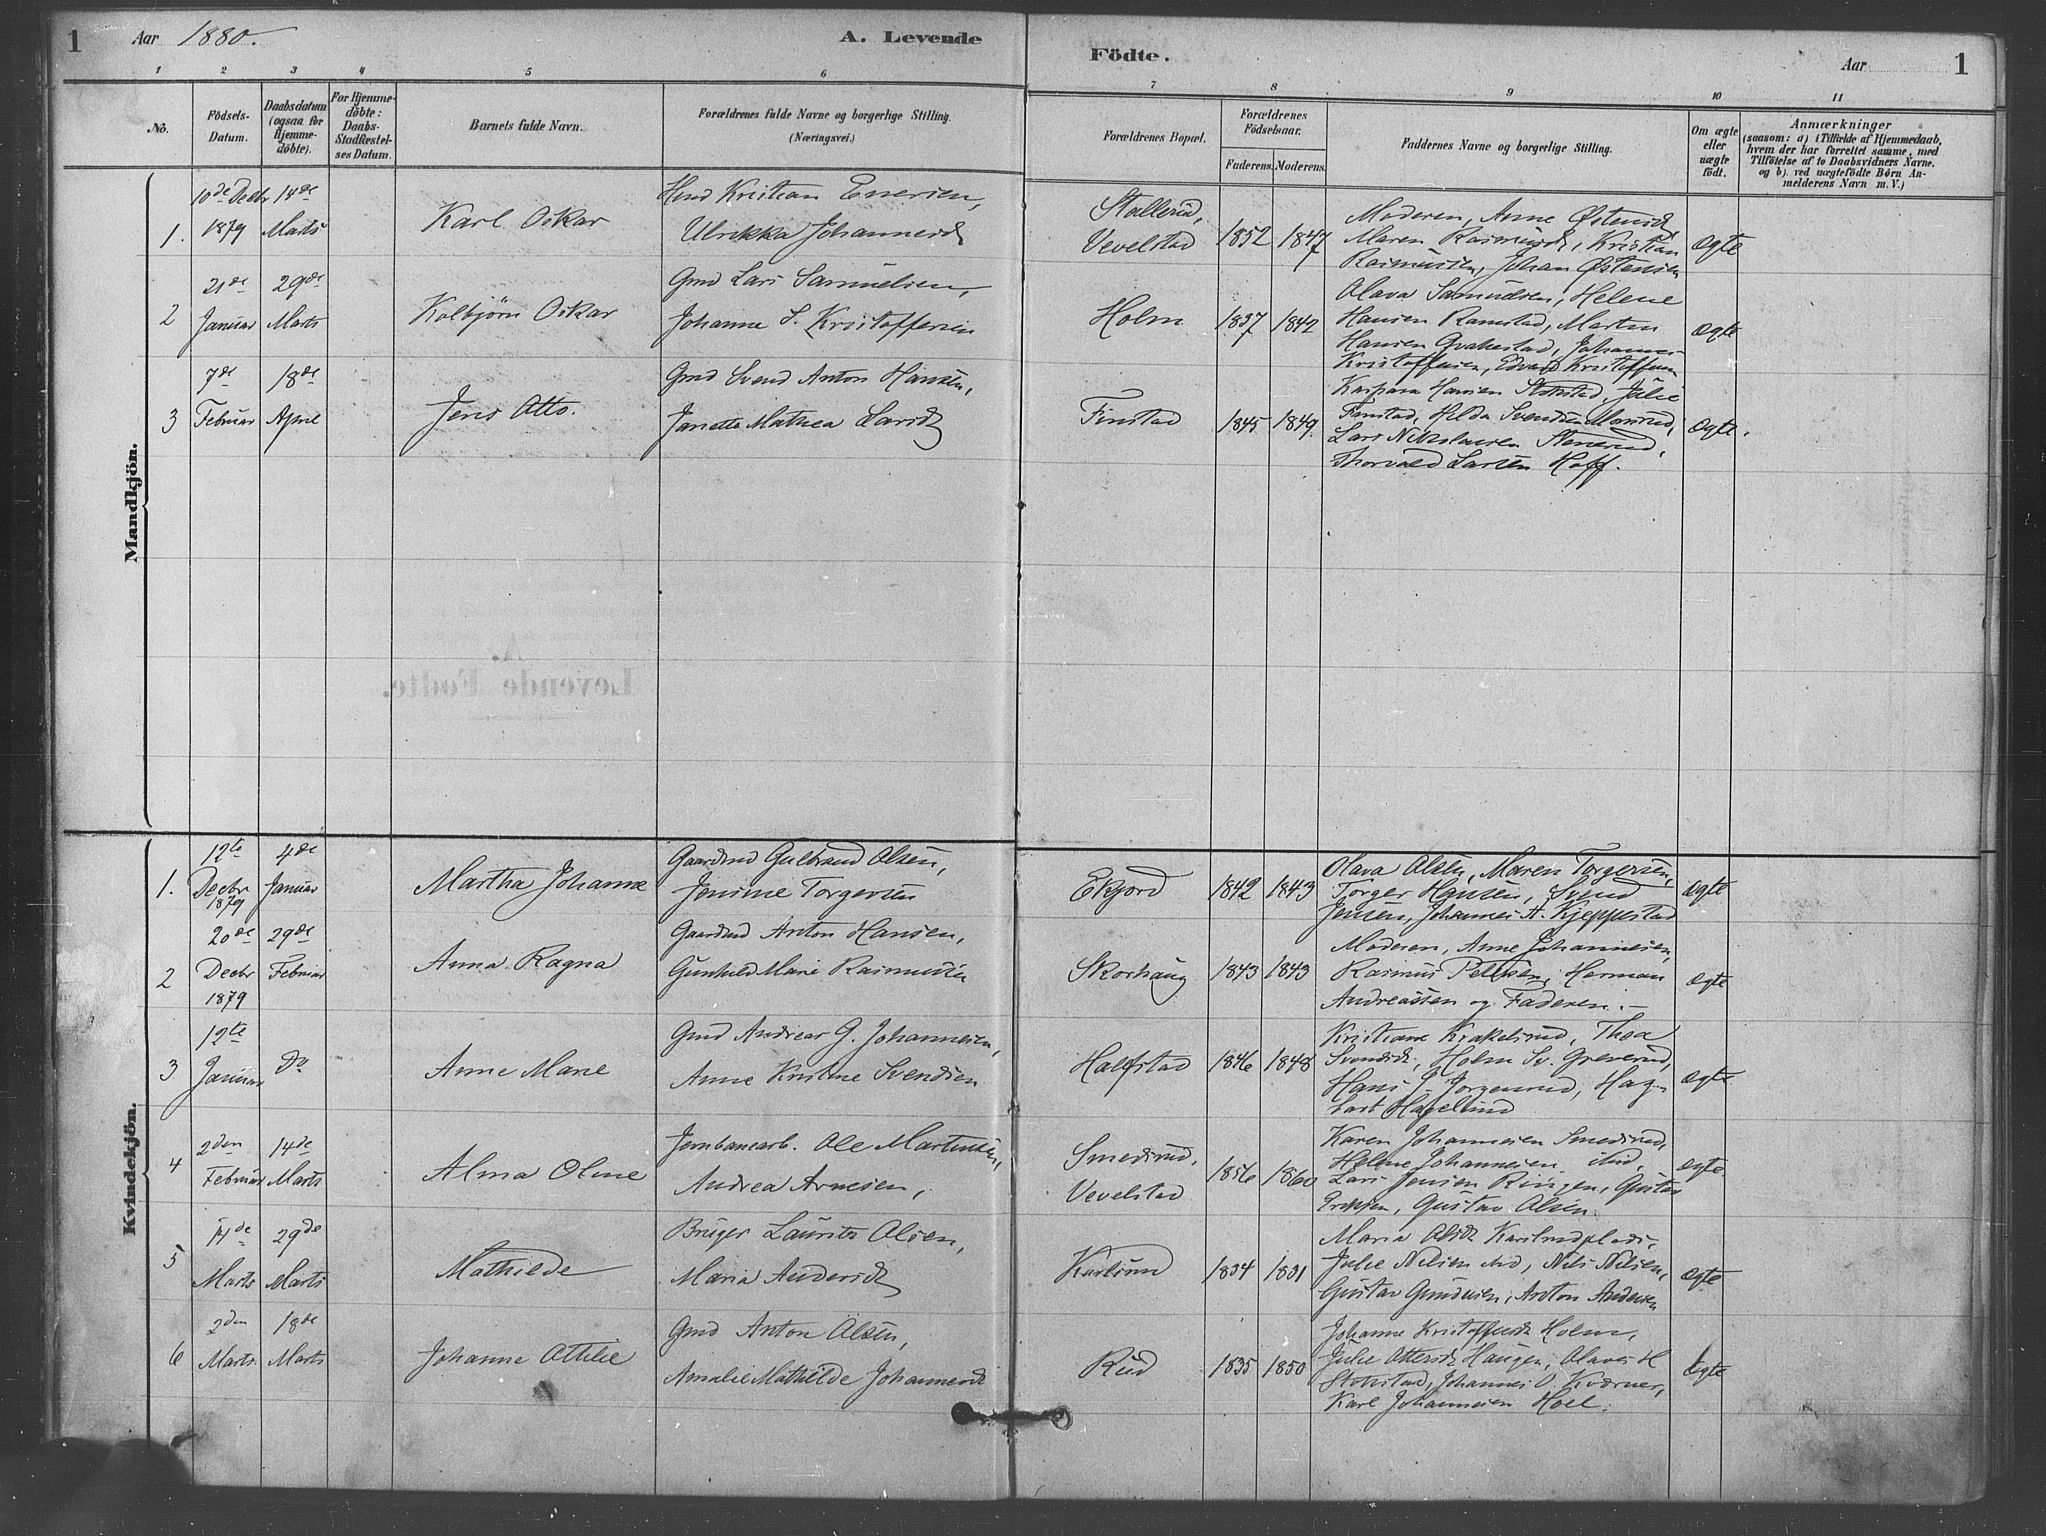 1 Aar 1880. A. Levende Födte. Aar 1
1 2 3 4 5 6 7 8 9 10 11
No.
Födsels-
Datum.
Daabsdatum
(ogsaa for
Hjemme-
döbte).
For Hjemme-
döbte:
Daabs-
Stadfæstel-
ses Datum.
Barnets fulde Navn.
Forældrenes fulde Navne og borgerlige Stilling.
(Næringsvei.)
Forældrenes Bopæl.
Forældrenes
Födselsaar.
Faderens. Moderens.
Faddernes Navne og borgerlige Stilling.
Om ægte
eller
uægte
födt.
Anmærkninger
(saasom: a) i Tilfælde af Hjemmedaab,
hvem der har forrettet samme, med
Tilföielse af to Daabsvidners Navne,
og b) ved uægtefödte Børn An-
melderens Navn m. V.)
Mandkjön.
1.
10de Decbr
1879
14de
Marts
Karl Oskar
Hmd Kristian Enersen,
Ulrikka Johannesd
Stallerud,
Vevelstad
1852 1847
Moderen, Anne Østensd,
Maren Rasmusd, Kristian
Rasmussen, Johan Østensen
ægte
2
21de
Januar
29de
Marts
Kolbjörn Oskar
Gmd Lars Samuelsen,
Johanne S. Kristoffersen
Holm
1837 1842
Olava Samuelsen, Helene
Hansen Ramstad, Martin
Hansen Gvakestad, Johannes
Kristoffersen, Edvard Kristoffersen
ægte
3
7de
Februar
18de
April
Jens Otto.
Gmd Svend Anton Hansen,
Janette Mathea Larsd
Finstad
1845 1849.
Kaspara Hansen Stokstad, Julie
Finstad, Helda Svendsen Monsrud,
Lars Nikolaisen Stenerud,
Thorvald Larsen Hoff.
ægte.
Kvindekjön.
1.
12te
Decbr
1879
4de
Januar
Martha Johanne
Gaardmd Gulbrand Olsen,
Jensine Torgersen
Ekjord
1842 1843
Olava Olsen, Maren Torgersen,
Torger Hansen, Svend
Jensen, Johannes A. Kjeppestad
ægte
2
20de
Decbr
1879
29de
Februar
Anna Ragna
Gaardmd Anton Hansen,
Gunhild Marie Rasmussen
Skorhaug
1843 1843
Moderen, Anne Johannesen,
Rasmus Pettersen, Herman
Andreassen og Faderen.-
ægte
3
12te
Januar
Do
Anne Marie
Gmd Andreas G. Johannesen,
Anne Kristine Svendsen
Halfstad
1846 1848
Kristiane Krakelsrud, Thea
Svendsd, Holm Sv. Greverud,
Hans J. Jorgensrud, Hag-
bart Hagelund
ægte
4
2den
Februar
14de
Marts
Alma Oline
Jernbanearb. Ole Martinsen,
Andrea Arnesen,
Smedsrud,
Vevelstad
1856 1860
Karen Johannesen Smedsrud,
Helene Johannesen ibid,
Lars Jensen Ringen, Gustav
Eriksen, Gustav Olsen
ægte.
5
14de
Marts
29de
Marts
Mathilde
Bruger Laurits Olsen,
Maria Andersd
Karlsrud
1834 1831
Maria Olsd Karlsrudplads,
Julie Nilsen ibid, Nils Nilsen,
Gustav Gundersen, Anton Andersen
ægte
6
2den
Marts.
18de
Marts
Johanne Othilie
Gmd Anton Olsen,
Amalie Mathilde Johannesd
Rud
1835 1850
Johanne Kristoffersd Holm,
Julie Ottersd Haugen, Olaves H
Stokstad, Johannes O. Kværner,
Karl Johannesen Hoel.
Ægte